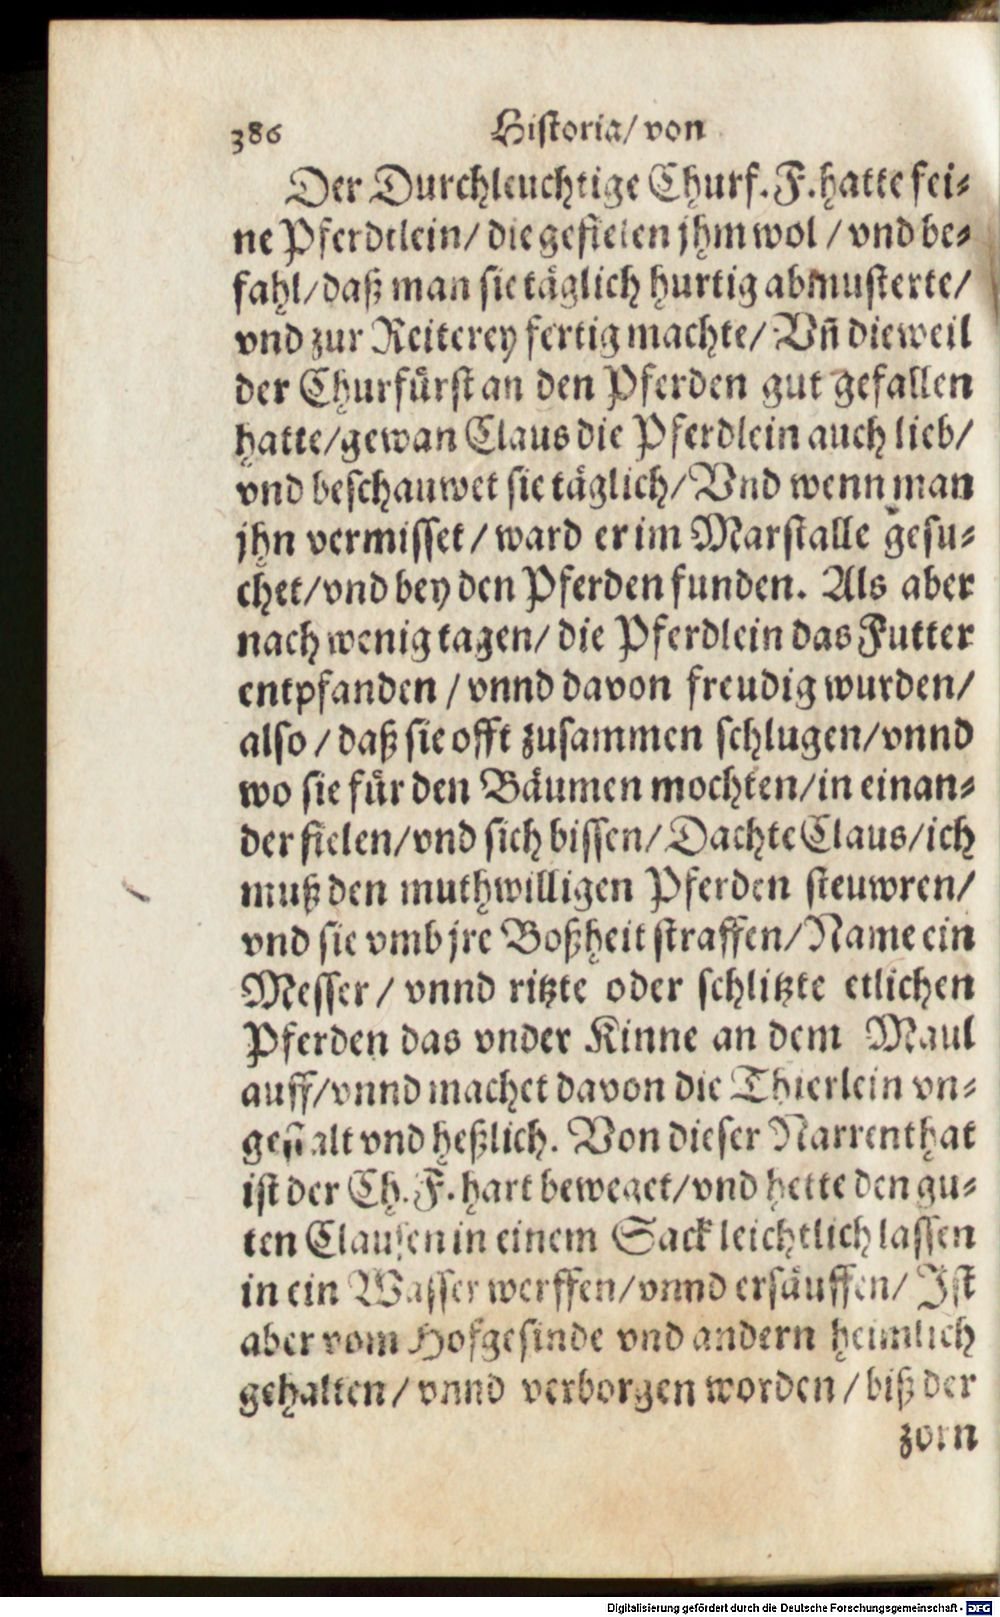 386 Historia/ von
Der Durchleuchtige Churf. F. hatte fei⸗
ne Pferdtlein/ die gefielen jhm wol / vnd be⸗
fahl/ daß man sie täglich hurtig abmusterte/
vnd zur Reiterey fertig machte/ Vñ dieweil
der Churfürst an den Pferden gut gefallen
hatte/ gewan Claus die Pferdlein auch lieb/
vnd beschauwet sie täglich/ Vnd wenn man
jhn vermisset / ward er im Marstalle gesu⸗
chet/ vnd bey den Pferden funden. Als aber
nach wenig tagen/ die Pferdlein das Futter
entpfanden / vnnd davon freudig wurden/
also / daß sie offt zusammen schlugen/ vnnd
wo sie für den Bäumen mochten/ in einan⸗
der fielen/ vnd sich bissen/ Dachte Claus/ ich
muß den muthwilligen Pferden steuwren/
vnd sie vmb jre Boßheit straffen/ Name ein
Messer / vnnd ritzte oder schlitzte etlichen
Pferden das vnder Kinne an dem Maul
auff/ vnnd machet davon die Thierlein vn⸗
gestalt vnd heßlich. Von dieser Narrenthat
ist der Ch. F. hart beweget/ vnd hette den gu⸗
ten Clausen in einem Sack leichtlich lassen
in ein Wasser werffen/ vnnd ersäuffen/ Ist
aber vom Hofgesinde vnd andern heimlich
gehalten / vnnd verborgen worden / biß der
zorn
Digitalisierung gefördert durch die Deutsche Forschungsgemeinschaft - DFG